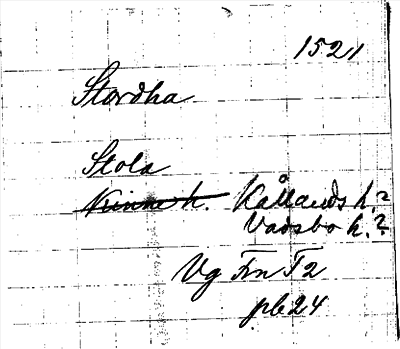 1521
Stordha
Stola
Kinne h. Kållands h.?
Vadsbo h.?
Vg Fn T2
pb 24